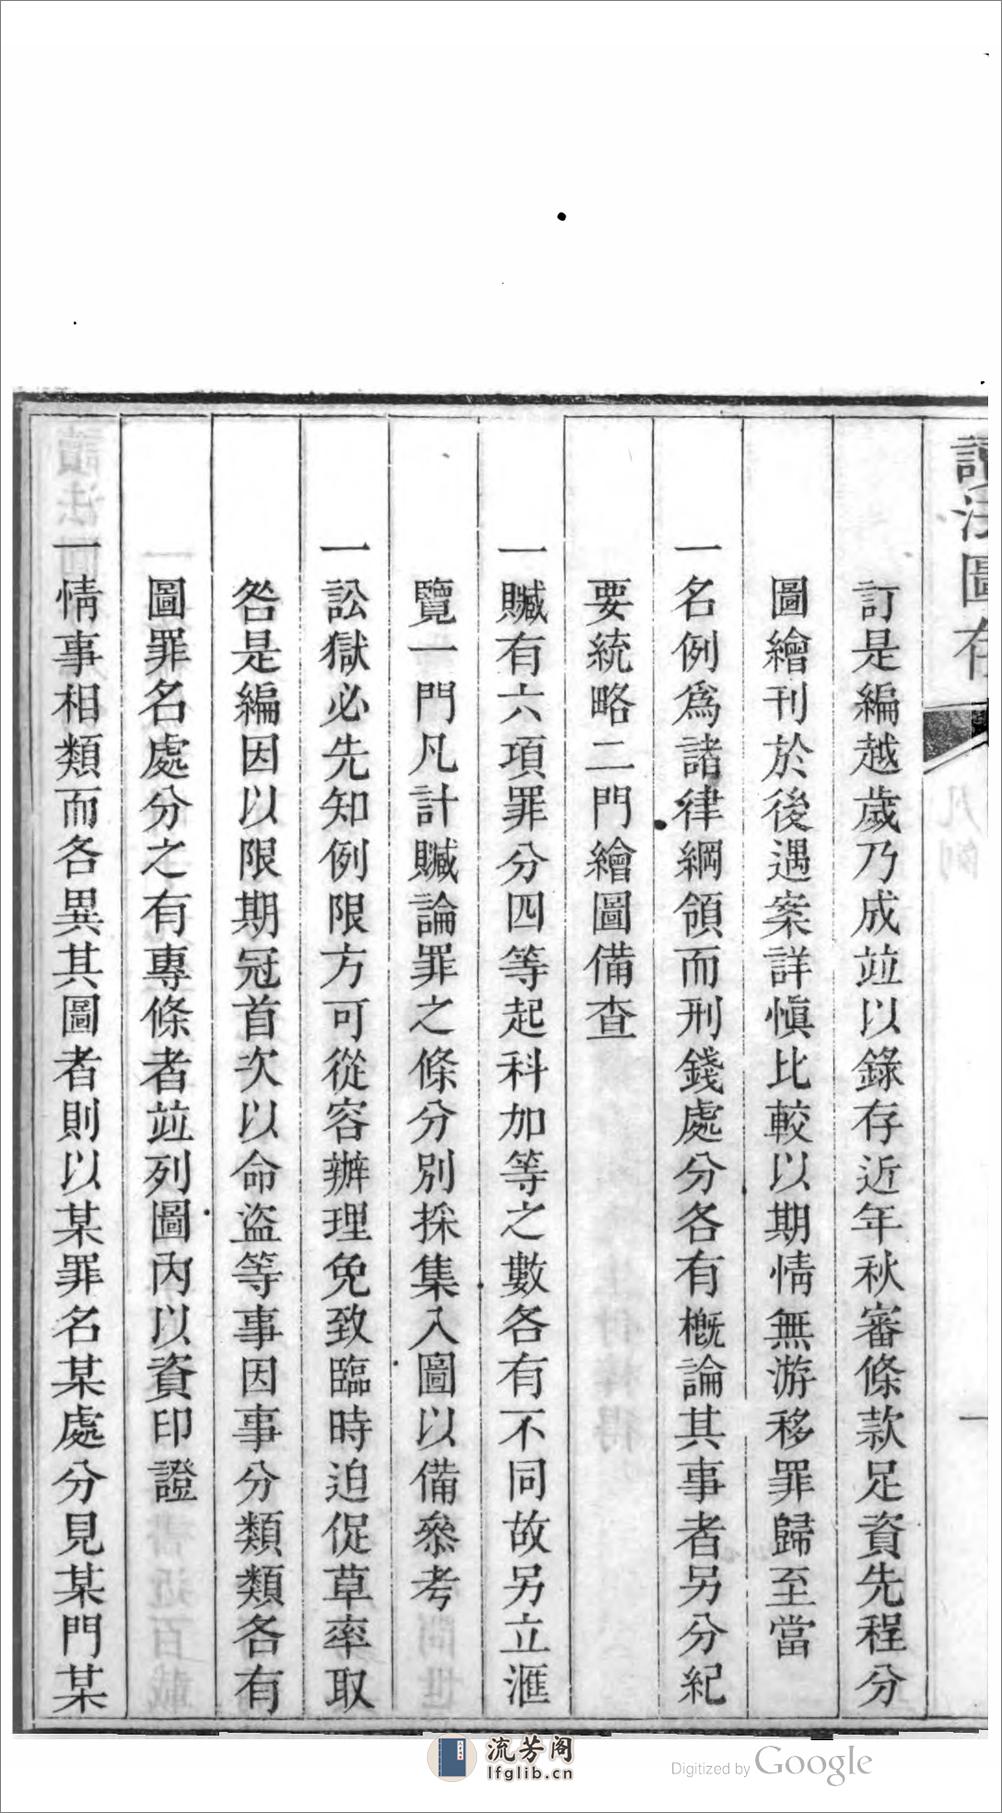 讀法圖存
凡例
一
訂是編越歲乃成竝以錄存近年秋審條款足資先程分
圖繪刊於後遇案詳慎比較以期情無游移罪歸至當
一名例爲諸律綱領而刑錢處分各有槪論其事者另分紀
要統略二門繪圖備查
一贓有六項罪分四等起科加等之數各有不同故另立滙
覽一門凡計贓論罪之條分別採集入圖以備叅考
一訟獄必先知例限方可從容辦理免致臨時迫促草率取
咎是編因以限期冠首次以命盜等事因事分類類各有
圖罪名處分之有專條者竝列圖內以資印證
一情事相類而各異其圖者則以某罪名某處分見某門某
流芳阁
lfglib.cn
Digitized by Google